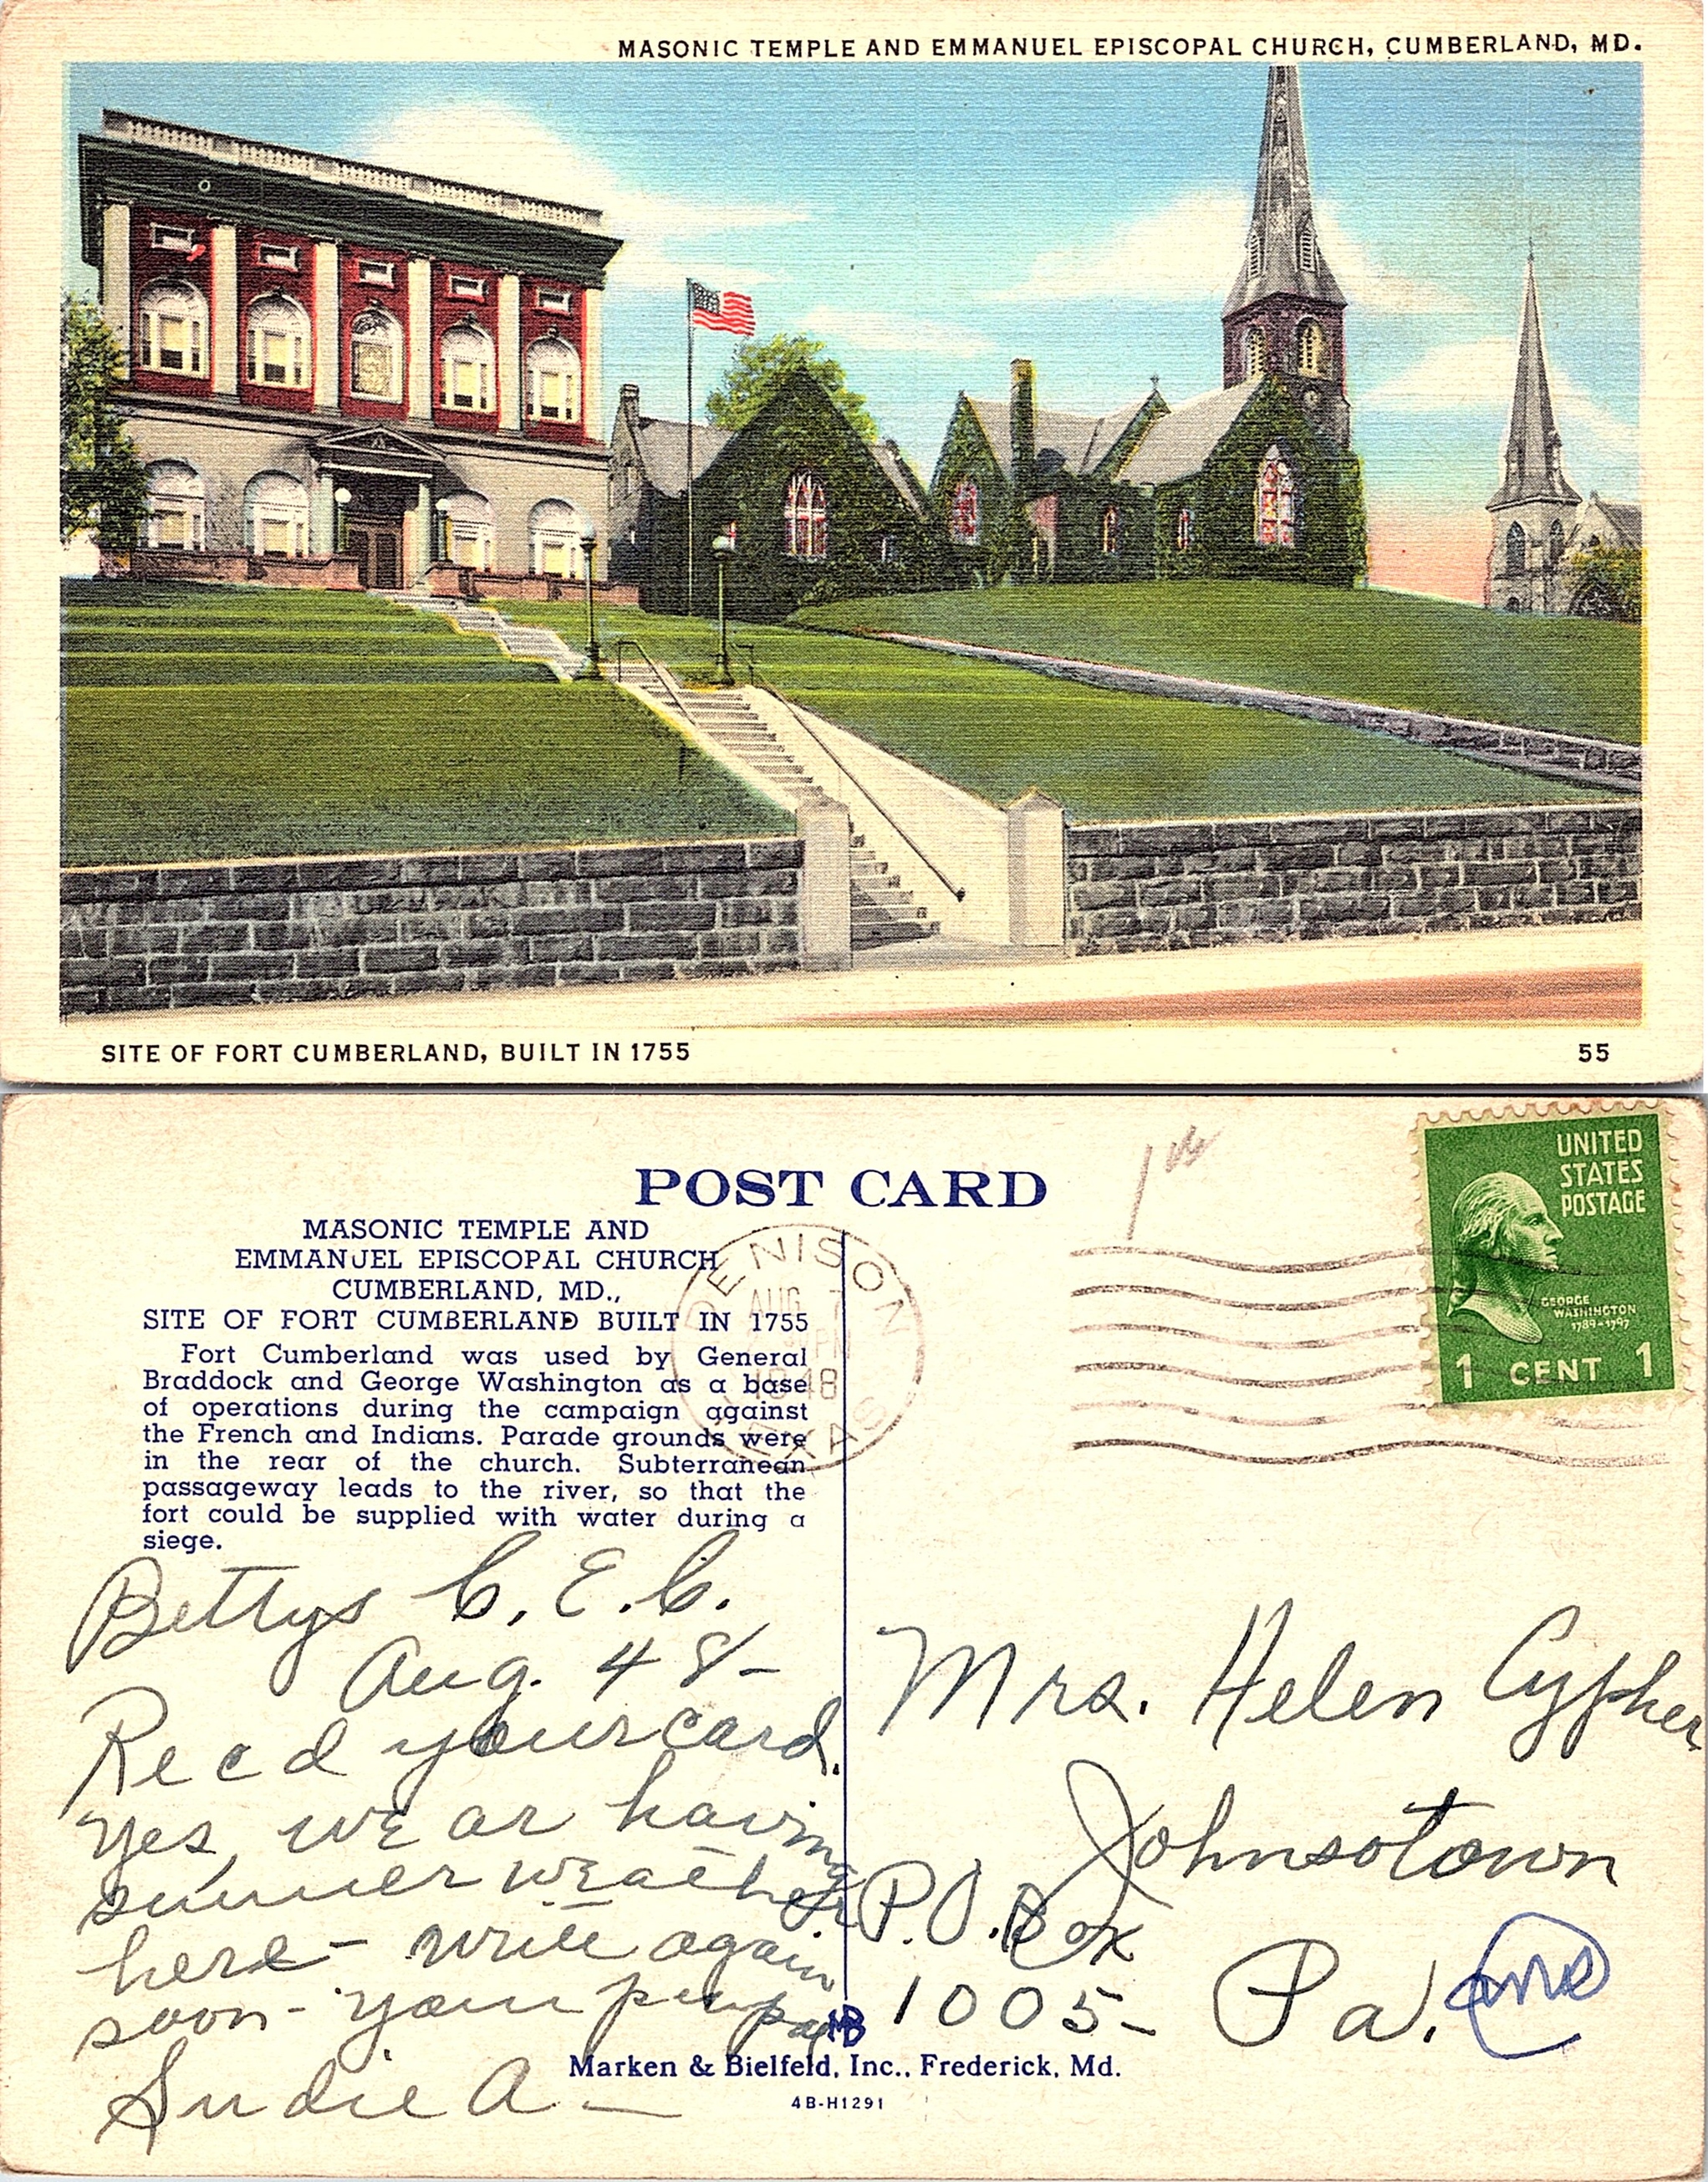 MASONIC TEMPLE AND EMMANUEL EPISCOPAL CHURCH, CUMBERLAND, MD.
SITE OF FORT CUMBERLAND, BUILT IN 1755
55
POST CARD
MASONIC TEMPLE AND
EMMANUEL EPISCOPAL CHURCH
CUMBERLAND, MD.,
SITE OF FORT CUMBERLAND BUILT IN 1755
Fort Cumberland was used by General
Braddock and George Washington as a base
of operations during the campaign against
the French and Indians. Parade grounds were
in the rear of the church. Subterranean
passageway leads to the river, so that the
fort could be supplied with water during a
siege.
DENISON
AUG 7
PM
1948
TEXAS
UNITED
STATES
POSTAGE
GEORGE
WASHINGTON
1789-1797
1 CENT 1
Bettys C. E. C.
Aug. 48-
Recd your card.
Yes, we ar having
summer weather
here - write again
soon - your
Sudie A -
Mrs. Helen Cypher
Johnsotown
P.O. Box
1005- Pa.
Marken & Bielfeld, Inc., Frederick, Md.
4B-H1291